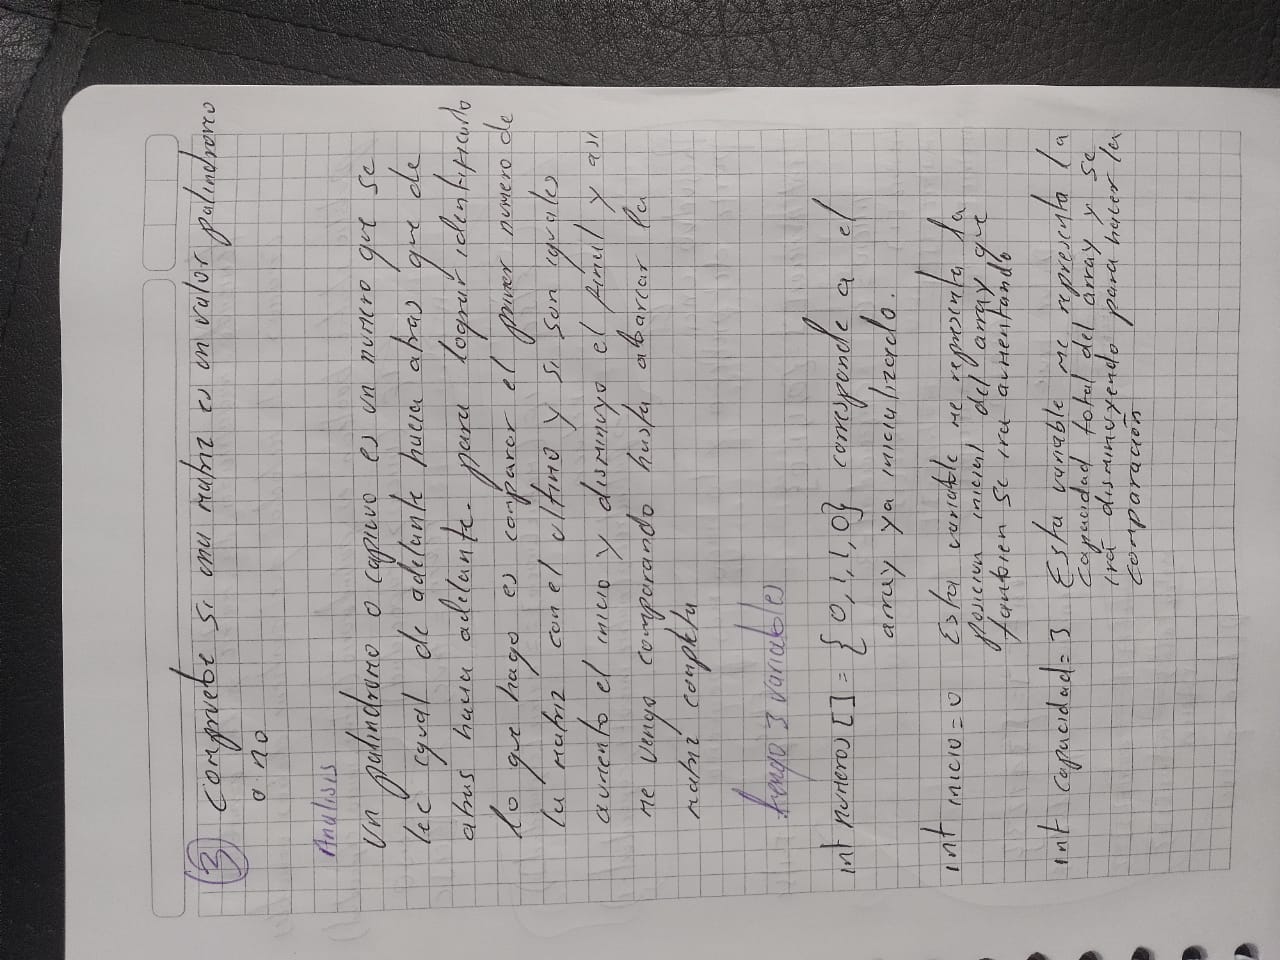 3 compruebe si una matriz es un valor palindromo
o no
Analisis
Un palindromo o capicuo es un numero que se
lee igual de adelante hacia atras que de
atras hacia adelante. para lograr identificarlo
lo que hago es comparar el primer numero de
la matriz con el ultimo y si son iguales
aumento el inicio y disminuyo el final y asi
me vengo comparando hasta abarcar la
matriz completa
tengo 3 variables
int numeros [] = {0,1,1,0} corresponde a el
array ya inicializado.
int inicio = 0 Esta variable me representa la
posicion inicial del array que
tambien se ira aumentando
int capacidad = 3 Esta variable me representa la
capacidad total del array y se
irá disminuyendo para hacer la
comparación